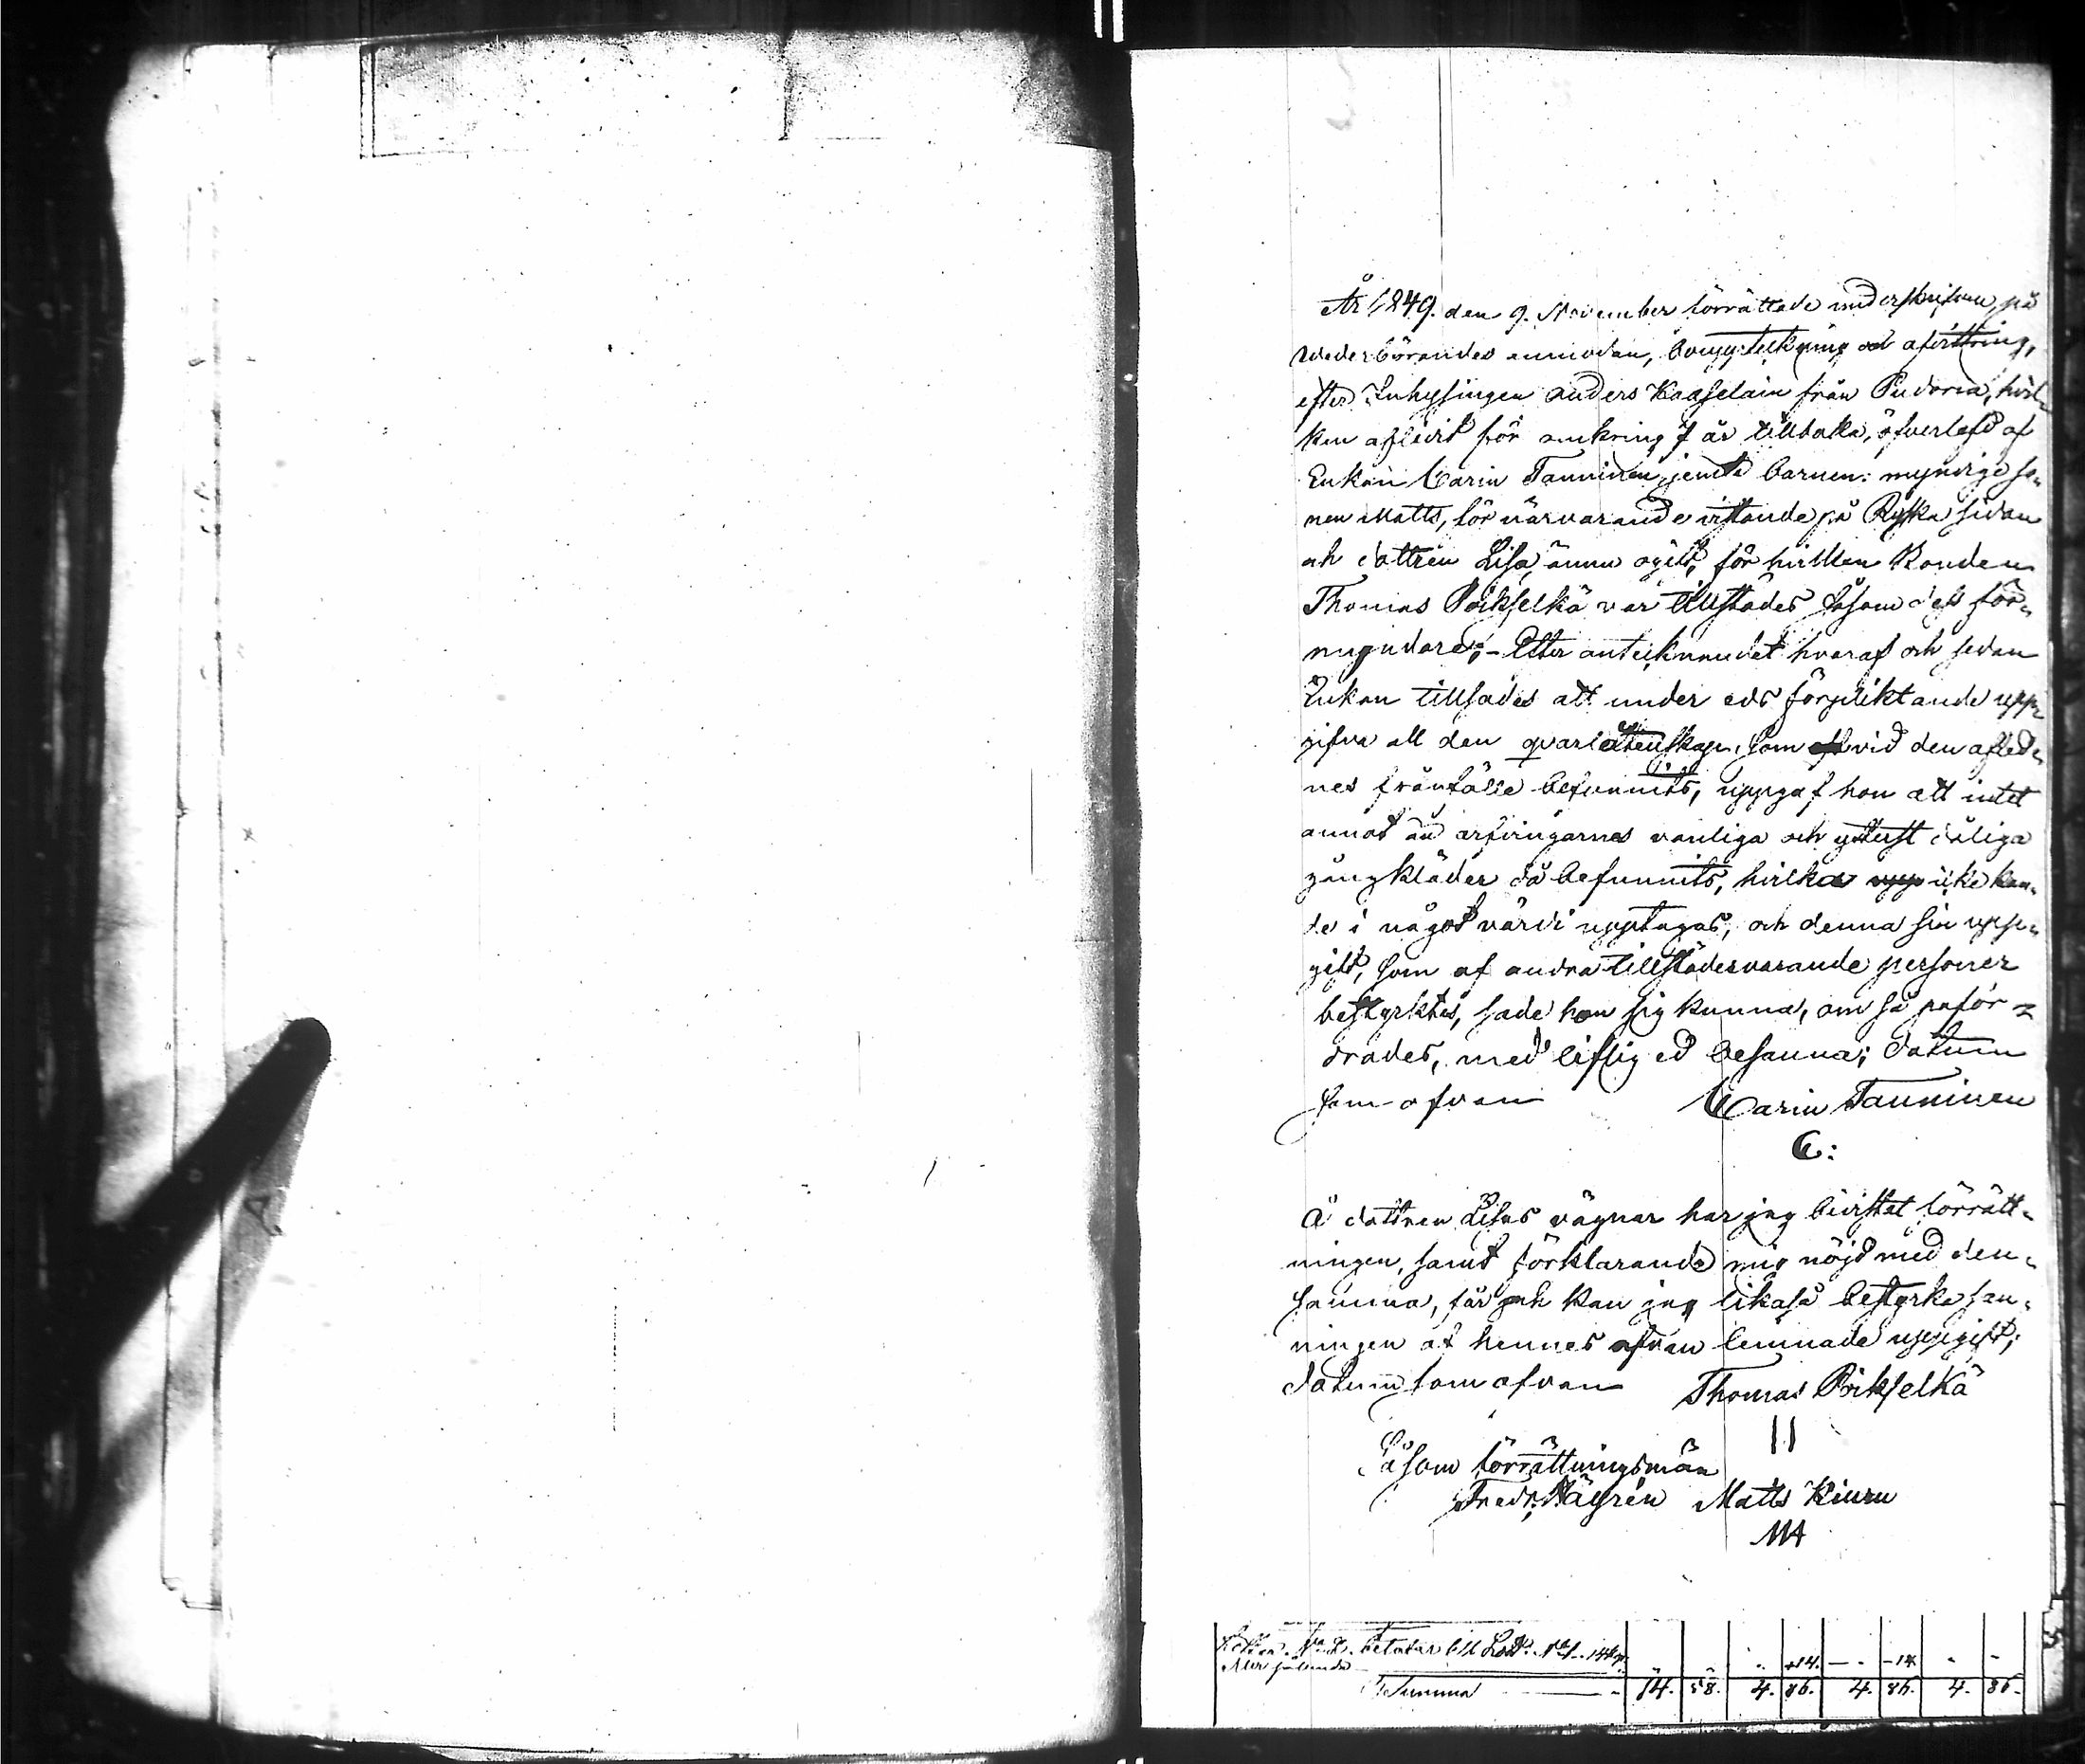 År 1849. den 9. November förrättade undersknifne, på
vederbörandes anmodan, bouppteckning och afvittring,
efter Inhysingen Anders Kaaselain från Pudoria, hvil-
ken aflidit för omkring 7 år tillbaka, öfverlefd af
Enkan Carin Tanninen jemte barnen: myndige so-
nen Matts, för närvarande vistande på Ryska sidan
och dottren Lisa, ännu ogift, för hvilken Bonden
Thomas Poikselkä var tillstädes såsom dess för-
myndare; – Efter antecknandet hvaraf och sedan
Enkan tillsades att under eds förpliktande upp-
gifva all den qvarlåtenskap, som vid den afled-
nes frånfälle befunnits, uppgaf hon att intet
annat än arfvingarnes vanliga och ytterst dåliga
gångkläder då befunnits, hvilka icke kun-
de i något värde upptagas, och denna sin upp-
gift, som af andra tillstädesvarande personer
bestyrktes, sade hon sig kunna, om så påfor-
drades, med liflig ed besanna; datum
som ofvan Carin Tanninen
C:
Å dottren Lisas vägnar har jag bivistat förrätt-
ningen, samt förklarande mig nöjd med den-
samma, får och kan jag likaså bestyrka san-
ningen af hennes ofvan lemnade uppgift;
datum som ofvan Thomas Poikselkä
Såsom förrättningsmän
Fredr. Matts Kiuru
MA
Summa 14. 58. 4. 86. 4. 86. 4. 86.